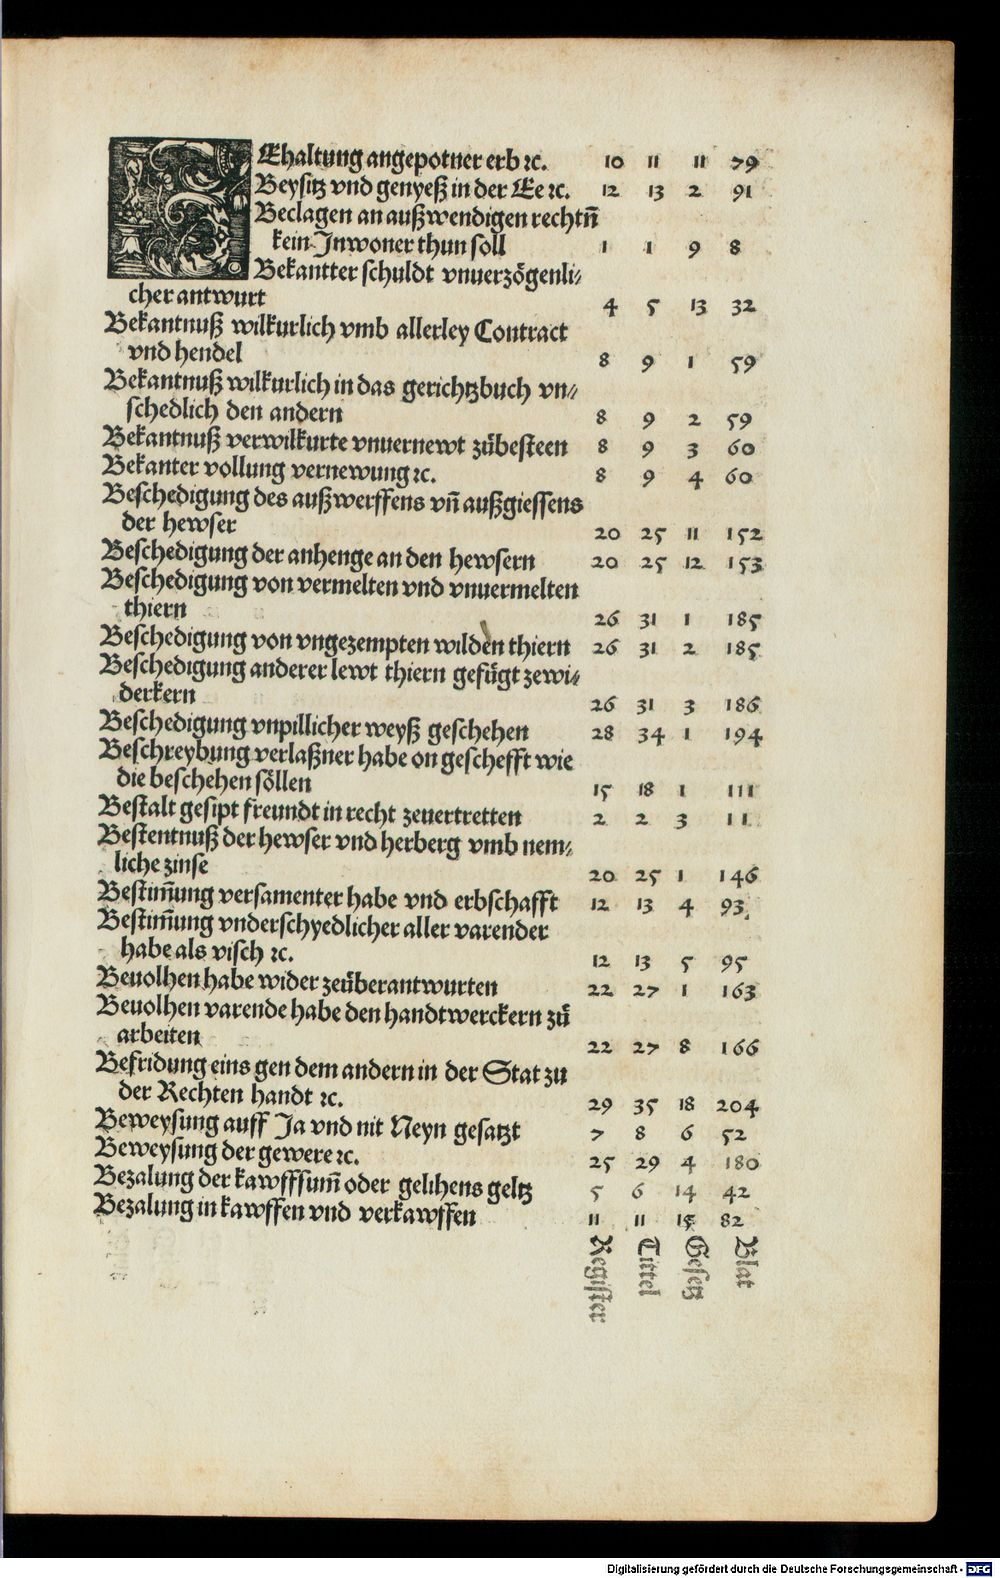 BEhaltung angepotner erb ⁊c. 10 11 11 79
Beysitz vnd genyeß in der Ee ⁊c. 12 13 2 91
Beclagen an außwendigen rechtn̄
kein Inwoner thun soll 1 1 9 8
Bekantter schuldt vnuerzögenli⸗
cher antwurt 4 5 13 32
Bekantnuß wilkurlich vmb allerley Contract
vnd hendel 8 9 1 59
Bekantnuß wilkurlich in das gerichtzbuch vn⸗
schedlich den andern 8 9 2 59
Bekantnuß verwilkurte vnuernewt zůbesteen 8 9 3 60
Bekanter vollung vernewung ⁊c. 8 9 4 60
Beschedigung des außwerffens vn̄ außgiessens
der hewser 20 25 11 152
Beschedigung der anhenge an den hewsern 20 25 12 153
Beschedigung von vermelten vnd vnuermelten
thiern 26 31 1 185
Beschedigung von vngezempten wilden thiern 26 31 2 185
Beschedigung anderer lewt thiern gefůgt zewi⸗
derkern 26 31 3 186
Beschedigung vnpillicher weyß geschehen 28 34 1 194
Beschreybung verlaßner habe on geschefft wie
die beschehen söllen 15 18 1 111
Bestalt gesipt freundt in recht zeuertretten 2 2 3 11
Bestentnuß der hewser vnd herberg vmb nem⸗
liche zinse 20 25 1 146
Bestim̄ung versamenter habe vnd erbschafft 12 13 4 93
Bestim̄ung vnderschyedlicher aller varender
habe als visch ⁊c. 12 13 5 95
Beuolhen habe wider zeüberantwurten 22 27 1 163
Beuolhen varende habe den handtwerckern zů
arbeiten 22 27 8 166
Befridung eins gen dem andern in der Stat zu
der Rechten handt ⁊c. 29 35 18 204
Beweysung auff Ja vnd nit Neyn gesatzt 7 8 6 52
Beweysung der gewere ⁊c. 25 29 4 180
Bezalung der kawfffsum̄ oder gelihens geltz 5 6 14 42
Bezalung in kawffen vnd verkawffen 11 11 15 82
Register Tittel Gesetz Blat
Digitalisierung gefördert durch die Deutsche Forschungsgemeinschaft - DFG